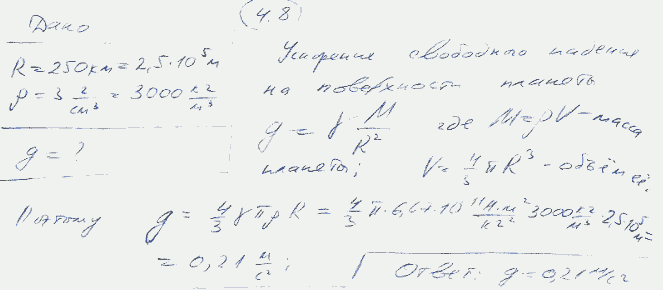 4.8
Дано
R = 250 км = 2,5·10⁵ м
ρ = 3 г/см³ = 3000 кг/м³
g = ?
Ускорение свободного падения
на поверхности планеты
g = γ M/R² где M = ρV – масса
планеты; V = 4/3 πR³ – объём её.
Поэтому g = 4/3 γπρR = 4/3 π·6,67·10⁻¹¹ Н·м²/кг² 3000 кг/м³·2,5·10⁵ м =
= 0,21 м/с²;
Ответ: g = 0,21 м/с²